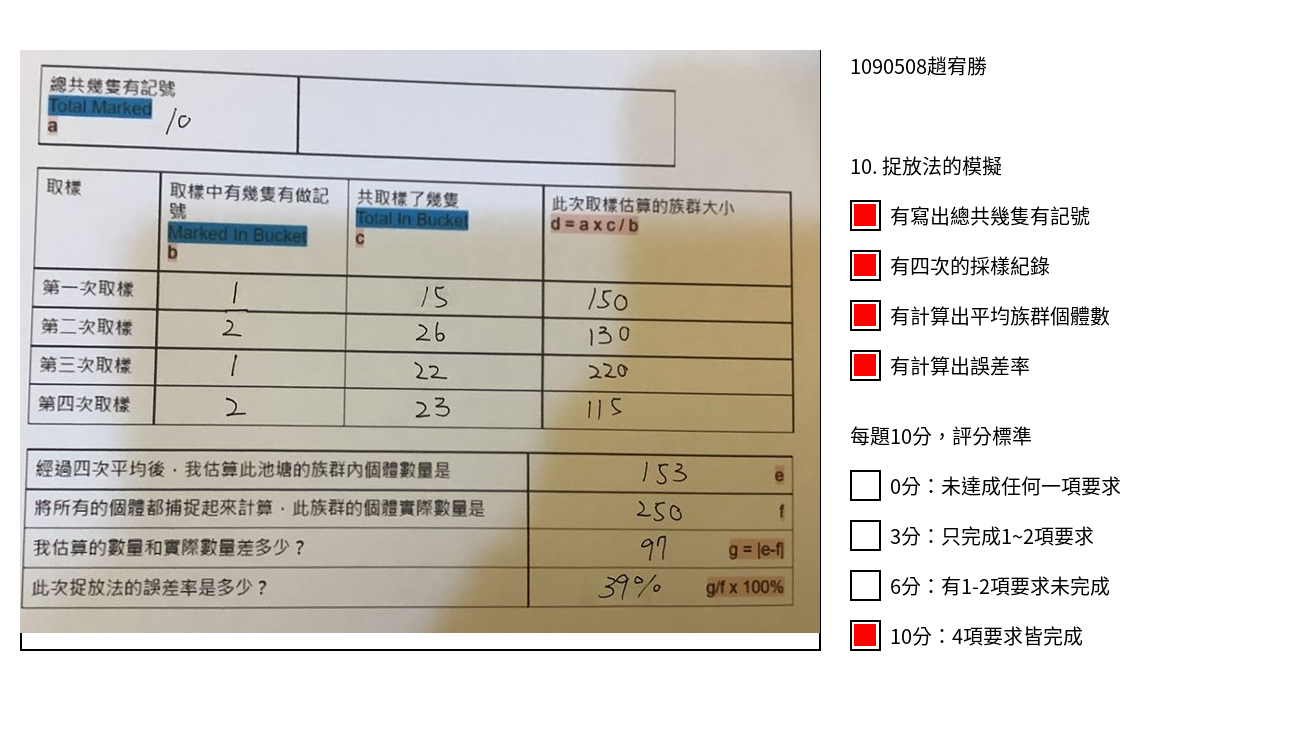 總共幾隻有記號
Total Marked
a
10
取樣
取樣中有幾隻有做記號
Marked In Bucket
b
共取樣了幾隻
Total In Bucket
c
此次取樣估算的族群大小
d = a x c / b
第一次取樣 1 15 150
第二次取樣 2 26 130
第三次取樣 1 22 220
第四次取樣 2 23 115
經過四次平均後，我估算此池塘的族群內個體數量是 153 e
將所有的個體都捕捉起來計算，此族群的個體實際數量是 250 f
我估算的數量和實際數量差多少？ 97 g = |e-f|
此次捉放法的誤差率是多少？ 39% g/f x 100%
1090508趙宥勝
10. 捉放法的模擬
有寫出總共幾隻有記號
有四次的採樣紀錄
有計算出平均族群個體數
有計算出誤差率
每題10分，評分標準
0分：未達成任何一項要求
3分：只完成1~2項要求
6分：有1-2項要求未完成
10分：4項要求皆完成